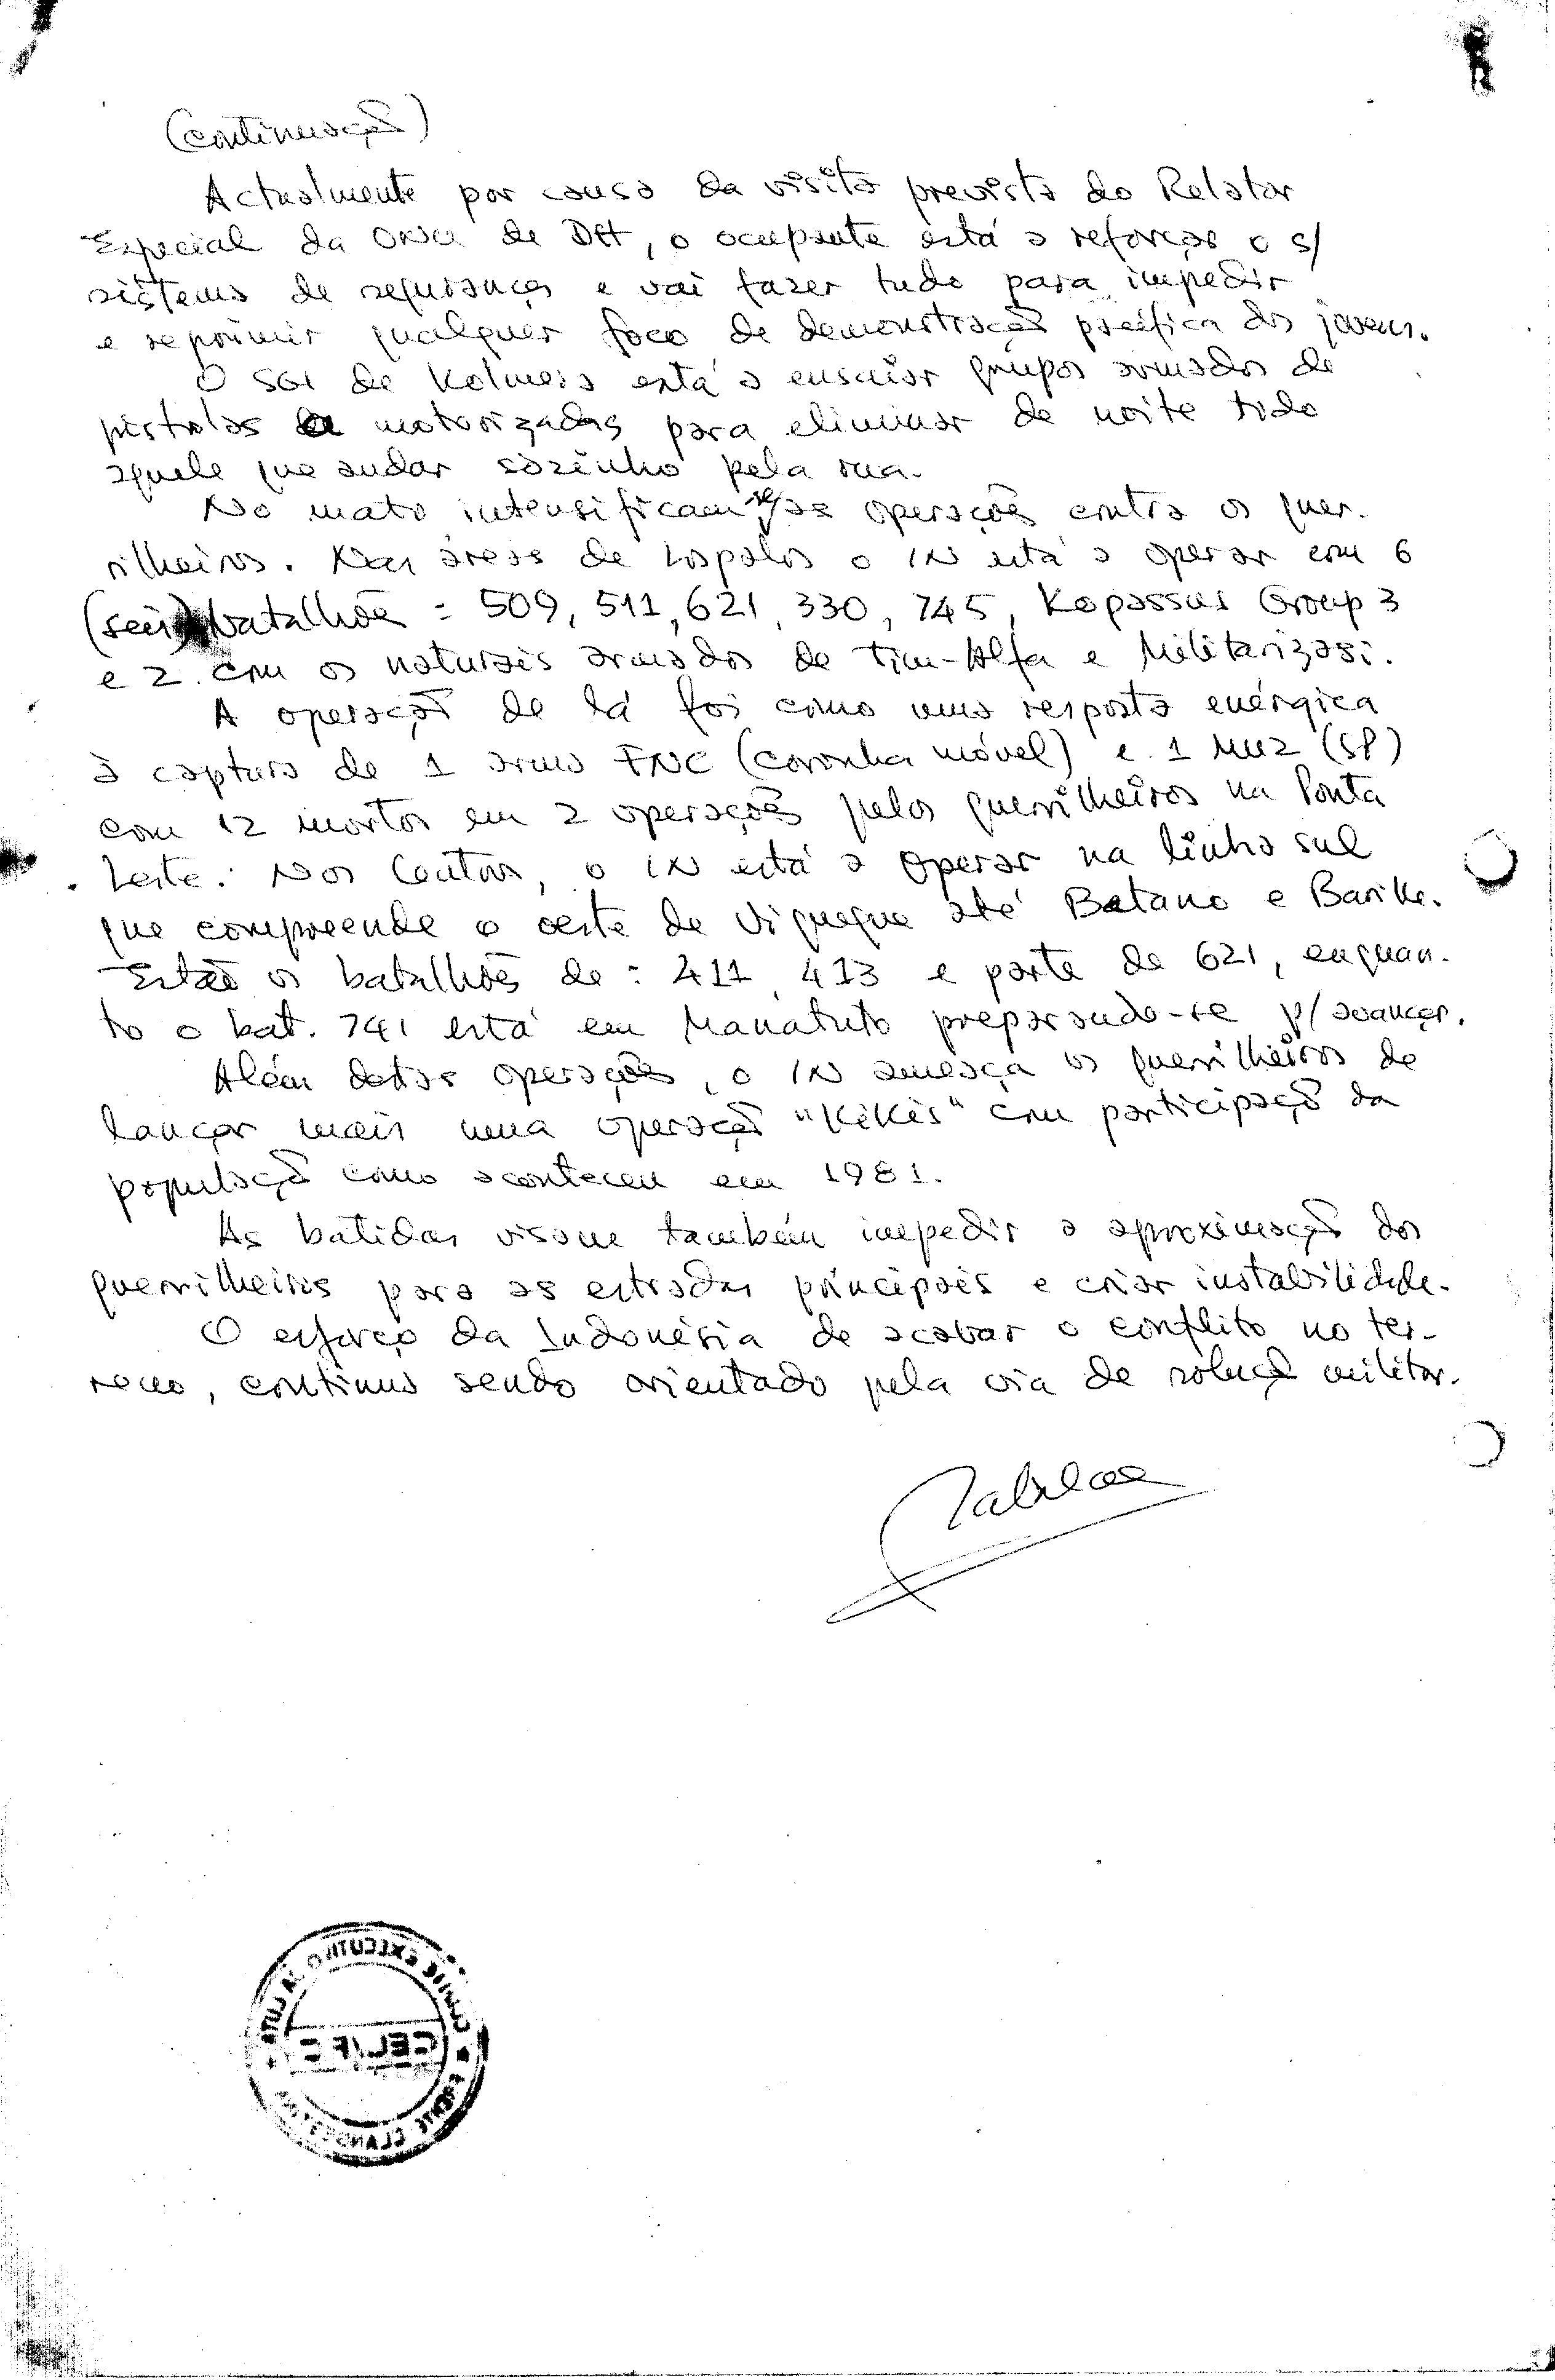 (continuação)
Actualmente por causa da visita prevista do Relator
Especial da ONU de DH, o ocupante está a reforçar o s/
sistema de segurança e vai fazer tudo para impedir
e reprimir qualquer foco de demonstração pacífica dos jovens.
O SGI de Kolmera está a ensaiar grupos armados de
pistolas e motorizadas para eliminar de noite todo
aquele que andar sòzinho pela rua.
No mato intensificam-se as operações contra os guer-
rilheiros. Nas áreas de Lospalos o IN está a operar com 6
(seis) batalhões: 509, 511, 621, 330, 745, Kopassus Group 3
e 2. com os naturais armados de Tim-Alfa e Militarizasi.
A operação de lá foi como uma resposta enérgica
à captura de 1 arma FNC (coronha móvel) e 1 M12 (SP)
com 12 mortos em 2 operações pelos guerrilheiros na Ponta
Leste. Nos Centros, o IN está a operar na linha sul
que compreende o oeste de Viqueque até Betano e Barike.
Estão os batalhões de: 411, 413 e parte de 621, enquan-
to o bat. 741 está em Manatuto preparando-se p/ avançar.
Além detas operações, o IN ameaça os guerrilheiros de
lançar mais uma operação "Kikis" com participação da
população como aconteceu em 1981.
As batidas visam também impedir a aproximação dos
guerrilheiros para as estradas principais e criar instabilidade.
O esforço da Indonésia de acabar o conflito no ter-
reno, continua sendo orientado pela via de solução militar.
COMITÉ EXECUTIVO DA LUTA
CEL/FC
FRENTE CLANDESTINA